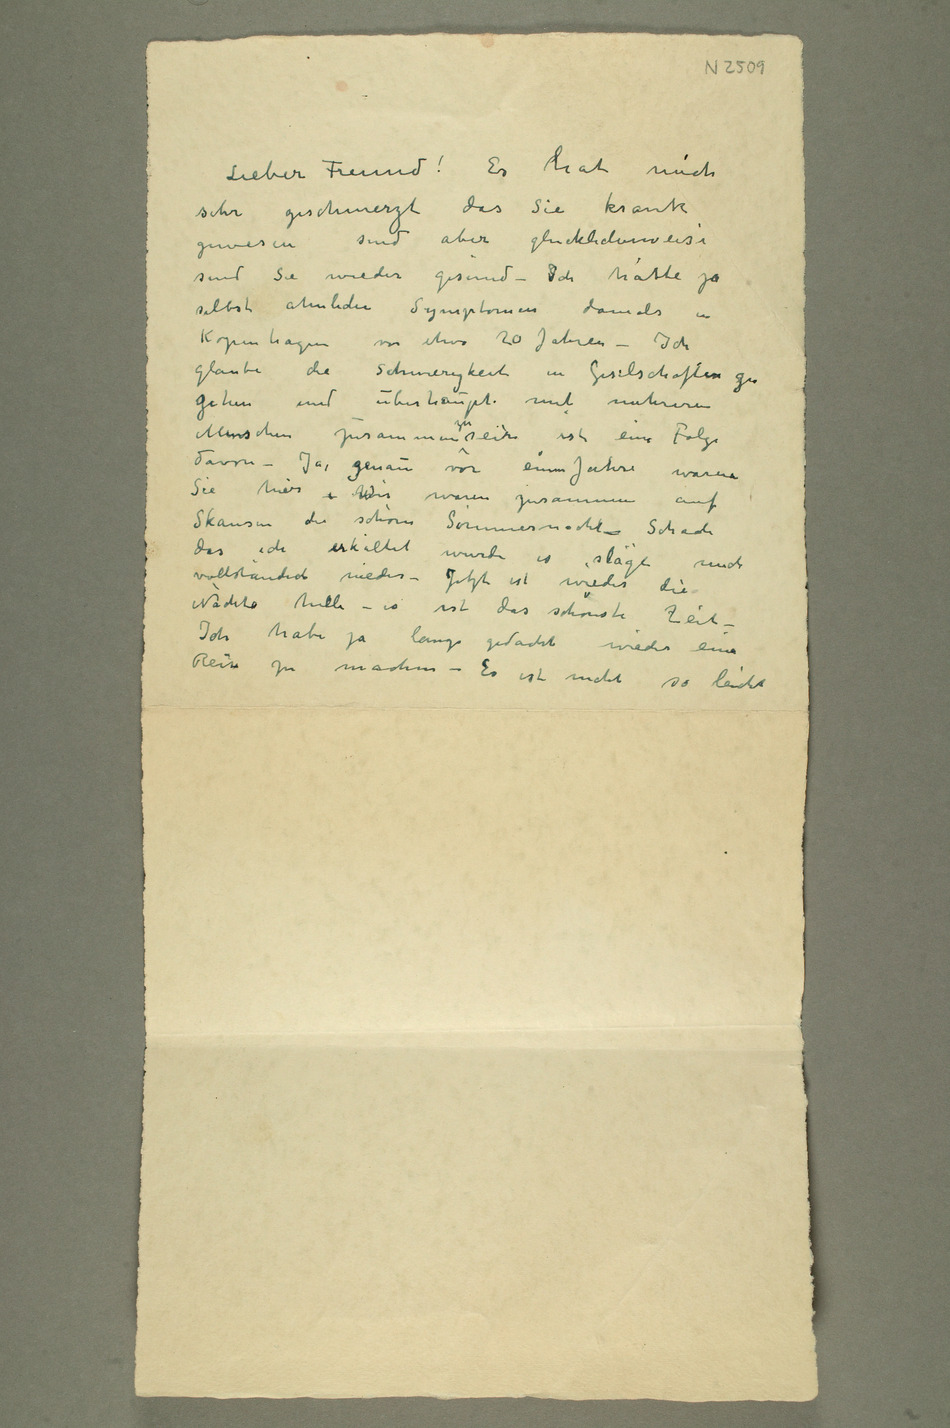 N 2509
Lieber Freund! Es hat mich
sehr geschmerzt das Sie krank
gewesen sind aber glücklicherweise
sind Sie wieder gesund – Ich hatte ja
selbst ähnliche Symptomen damals in
Kopenhagen vor etwa 20 Jahren – Ich
glaube die Schwierigkeit in Geselschaften zu
gehen und überhaupt mit mehreren
Menschen zusammen zu sein ist eine Folge
davon – Ja, genau vor einem Jahre waren
Sie hier Wir waren zusammen auf
Skansen die schöne Sommernacht – Schade
das ich erkältet wurde es släge mich
vollständich nieder – Jetzt ist wieder die
Nächte helle – es ist das schönste Zeit –
Ich habe ja lange gedacht wieder eine
Reise zu machen – Es ist nicht so leicht